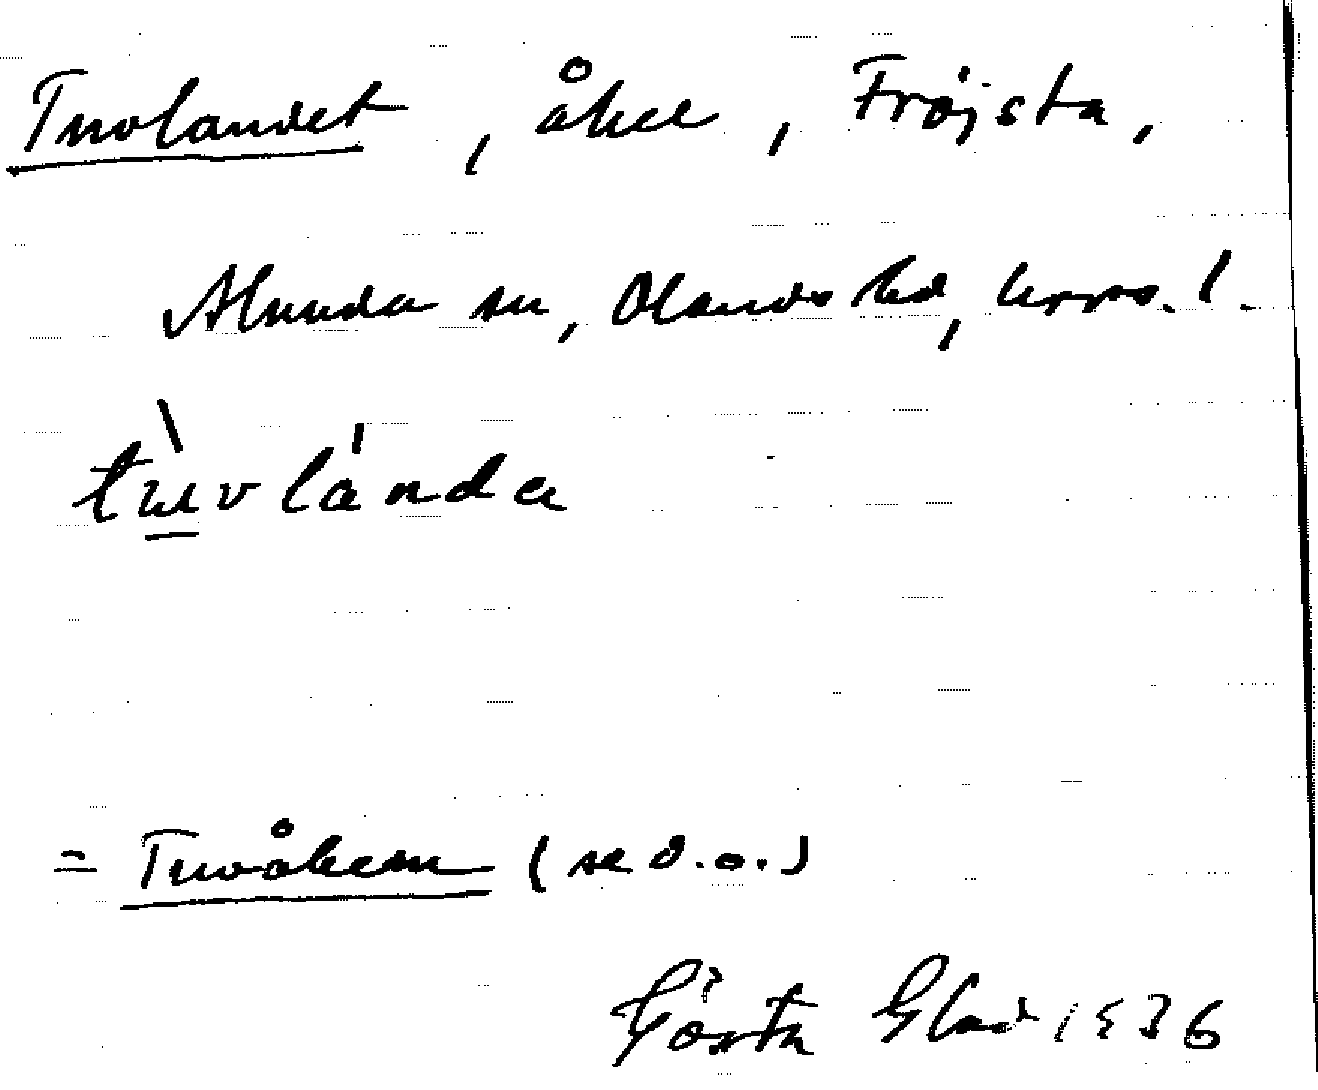 Tuvlandet, åker, Fröjsta,
Alunda sn, Olands hd, Upps. l.
tu̲vlánda
= Tuvåkern (se d.o.)
Gösta Glad 1936